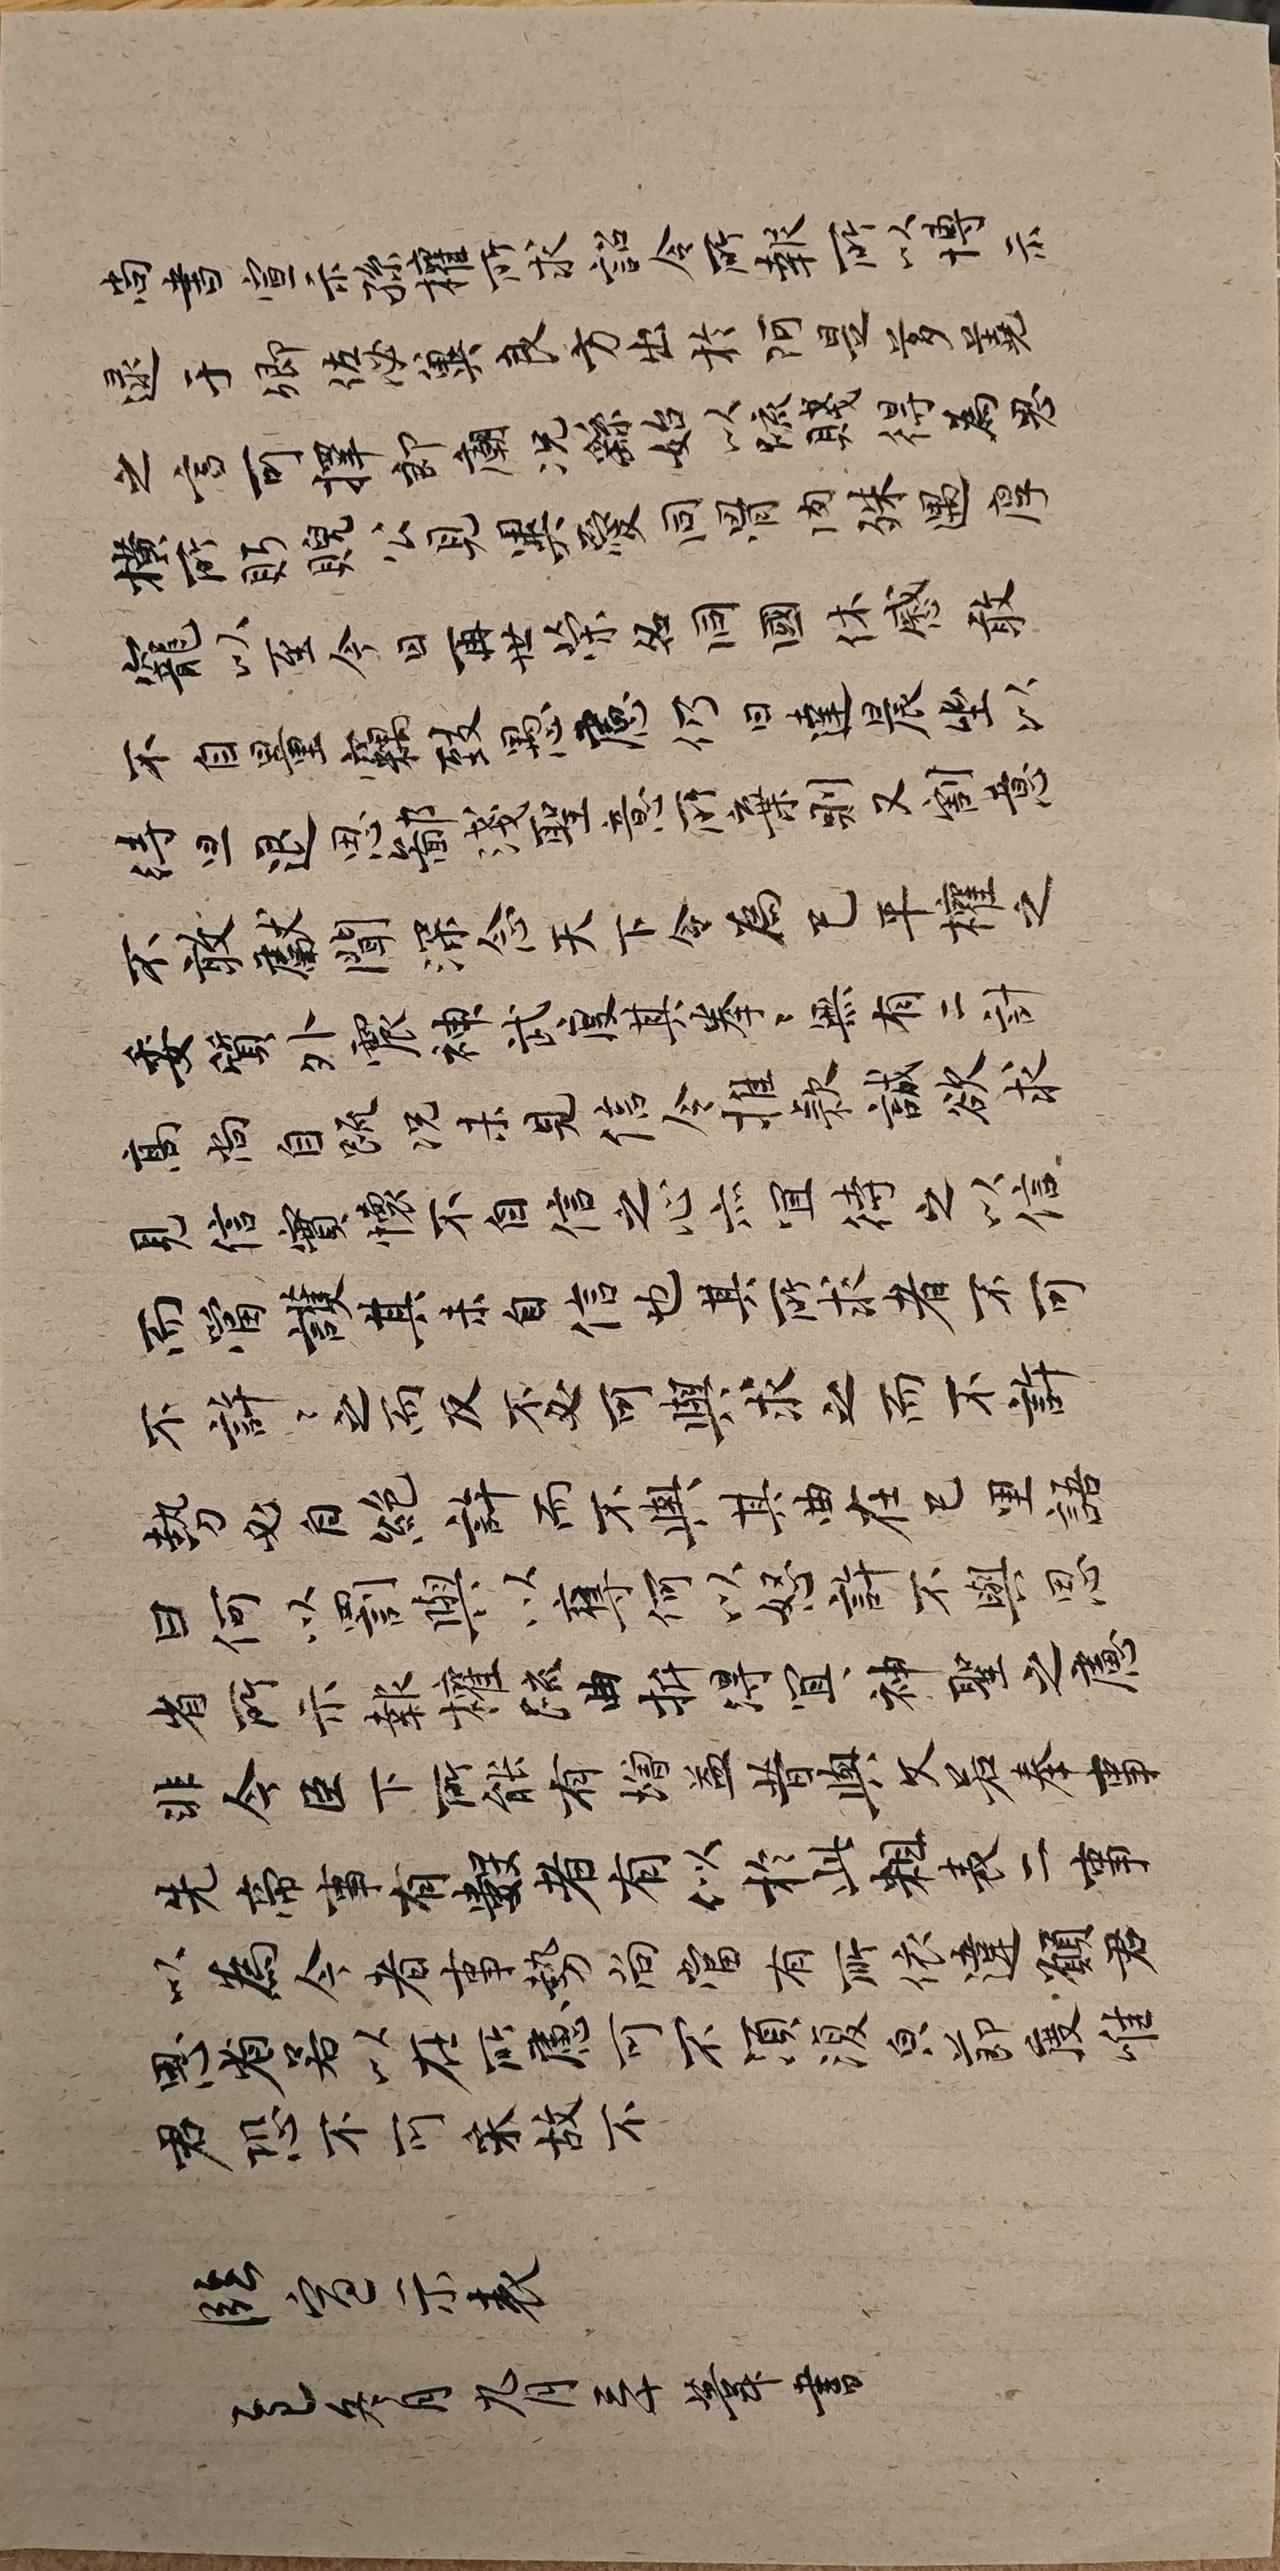 尚書宣示孫權所求詔令所報所以博示
逮于卿佐必冀良方出於阿是芻蕘
之言可擇郎廟況繇始以疏賤得為恩
橫所眄睨公私見異愛同骨肉殊遇厚
寵以至今日再世榮名同國休慼敢
不自量竊致愚慮仍日達晨坐以
待旦退思鄙淺聖意所棄則又割意
不敢獻聞深念天下今為已平權之
委質外震神武度其拳〻無有二計
高尚自疏況未見信今推款誠欲求
見信實懷不自信之心亦宜待之以信
而當護其未自信也其所求者不可
不許〻之而反不必可與求之而不許
勢必自絕許而不與其曲在己里語
曰何以罰與以奪何以怒許不與思
省所示報權疏曲折得宜神聖之慮
非今臣下所能有增益昔與文若奉事
先帝事有數者有似於此粗表二事
以為今者事勢尚當有所依違願君
思省若以在所慮可不須復貞節度唯
君恐不可采故不
臨宣示表
九月
書